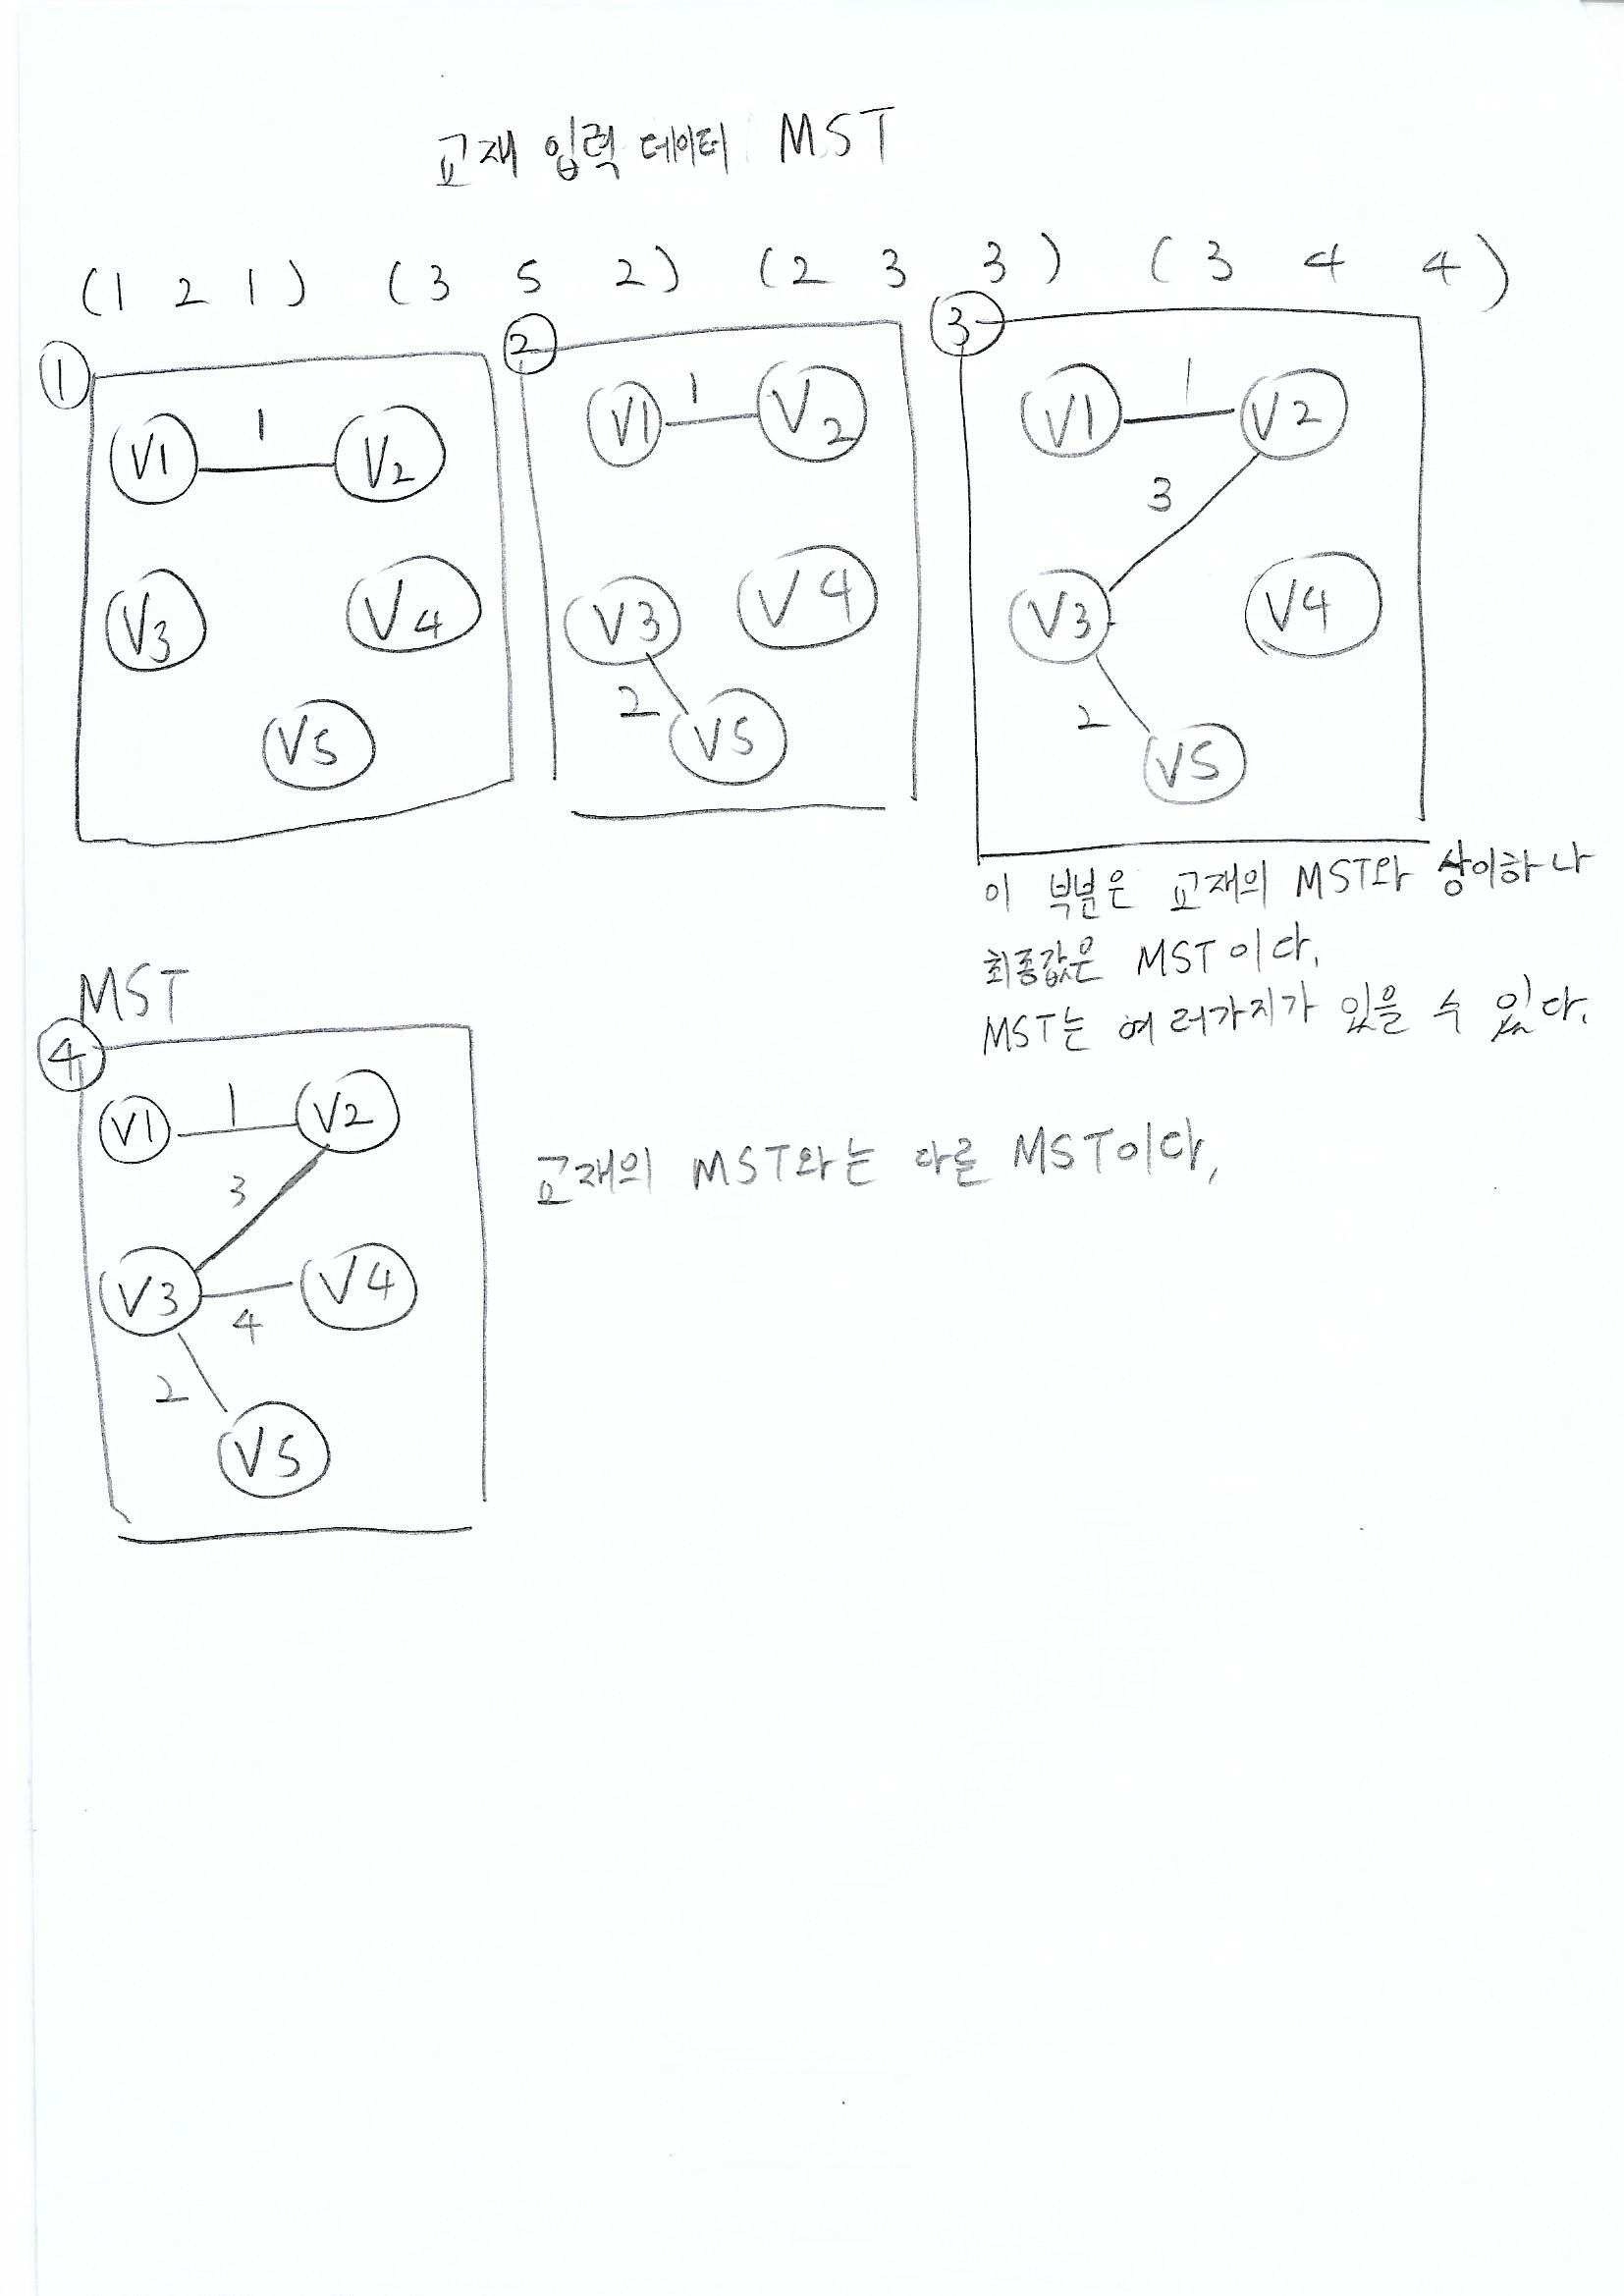 교재 입력 데이터 MST
(1 2 1) (3 5 2) (2 3 3) (3 4 4)
①
V1 1 V2
V3 V4
V5
②
V1 1 V2
V3 V4
2
V5
③
V1 1 V2
3
V3 V4
2
V5
이 부분은 교재의 MST와 상이하나
최종값은 MST이다.
MST는 여러가지가 있을 수 있다.
MST
④
V1 1 V2
3
V3 4 V4
2
V5
교재의 MST와는 다른 MST이다.